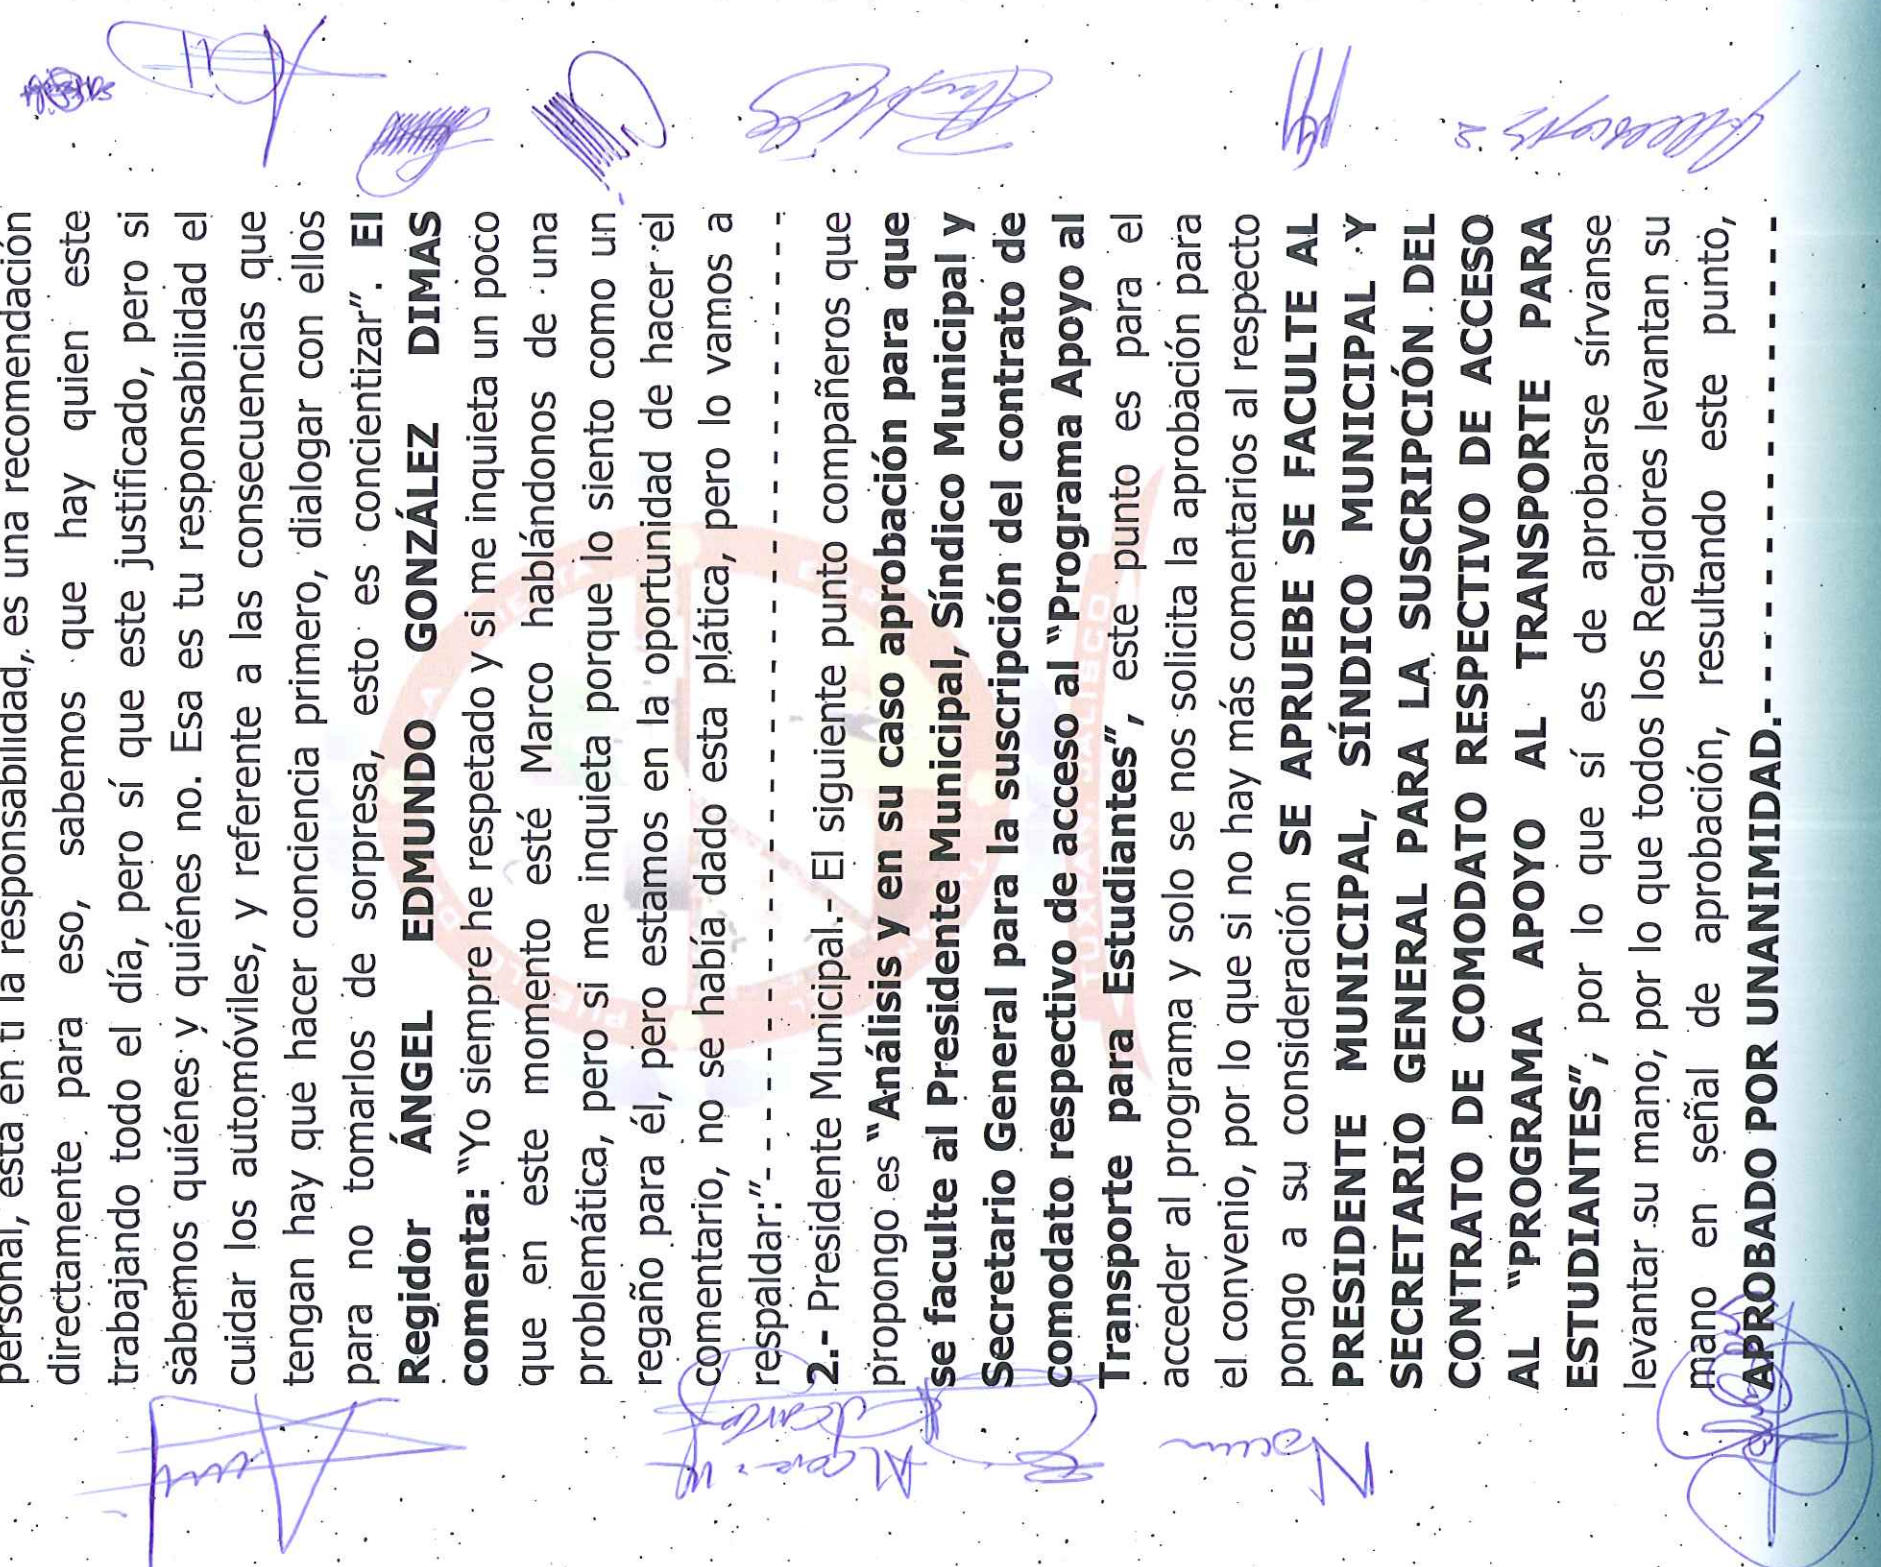 personal, esta en ti la responsabilidad, es una recomendación
directamente para eso, sabemos que hay quien este
trabajando todo el día, pero sí que este justificado, pero si
sabemos quiénes y quiénes no. Esa es tu responsabilidad el
cuidar los automóviles, y referente a las consecuencias que
tengan hay que hacer conciencia primero, dialogar con ellos
para no tomarlos de sorpresa, esto es concientizar”. El
Regidor ÁNGEL EDMUNDO GONZÁLEZ DIMAS
comenta: “Yo siempre he respetado y si me inquieta un poco
que en este momento esté Marco hablándonos de una
problemática, pero si me inquieta porque lo siento como un
regaño para él, pero estamos en la oportunidad de hacer el
comentario, no se había dado esta plática, pero lo vamos a
respaldar:”- - - - - - - - - - - - - - - - - - - - - - - - - - - - - -
2.- Presidente Municipal.- El siguiente punto compañeros que
propongo es “Análisis y en su caso aprobación para que
se faculte al Presidente Municipal, Síndico Municipal y
Secretario General para la suscripción del contrato de
comodato respectivo de acceso al “Programa Apoyo al
Transporte para Estudiantes”, este punto es para el
acceder al programa y solo se nos solicita la aprobación para
el convenio, por lo que si no hay más comentarios al respecto
pongo a su consideración SE APRUEBE SE FACULTE AL
PRESIDENTE MUNICIPAL, SÍNDICO MUNICIPAL Y
SECRETARIO GENERAL PARA LA SUSCRIPCIÓN DEL
CONTRATO DE COMODATO RESPECTIVO DE ACCESO
AL “PROGRAMA APOYO AL TRANSPORTE PARA
ESTUDIANTES”, por lo que sí es de aprobarse sírvanse
levantar su mano, por lo que todos los Regidores levantan su
mano en señal de aprobación, resultando este punto,
APROBADO POR UNANIMIDAD.- - - - - - - - - - - - - - - - - -
TUXPAN, JALISCO